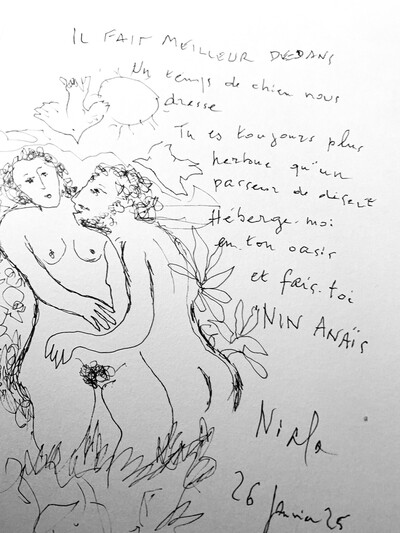 IL FAIT MEILLEUR DEDANS
Un temps de chien nous
dresse
Tu es toujours plus
herbue qu'un
passeur de désert
Héberge-moi
en ton oasis
et fais-toi
NIN ANAÏS
26 janvier 25